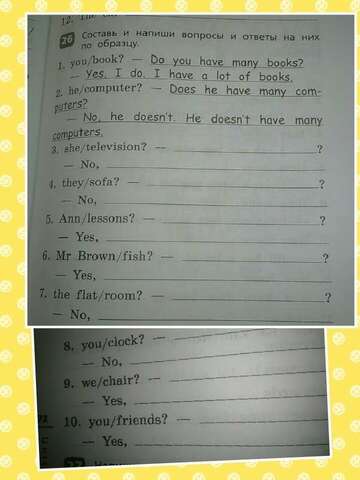 26 Составь и напиши вопросы и ответы на них
по образцу.
1. you/book? — Do you have many books?
— Yes, I do. I have a lot of books.
2. he/computer? — Does he have many com-
puters?
— No, he doesn't. He doesn't have many
computers.
3. she/television? — ?
— No,
4. they/sofa? — ?
— No,
5. Ann/lessons? — ?
— Yes,
6. Mr Brown/fish? — ?
— Yes,
7. the flat/room? — ?
— No,
8. you/clock? —
— No,
9. we/chair? —
— Yes,
10. you/friends? —
— Yes,